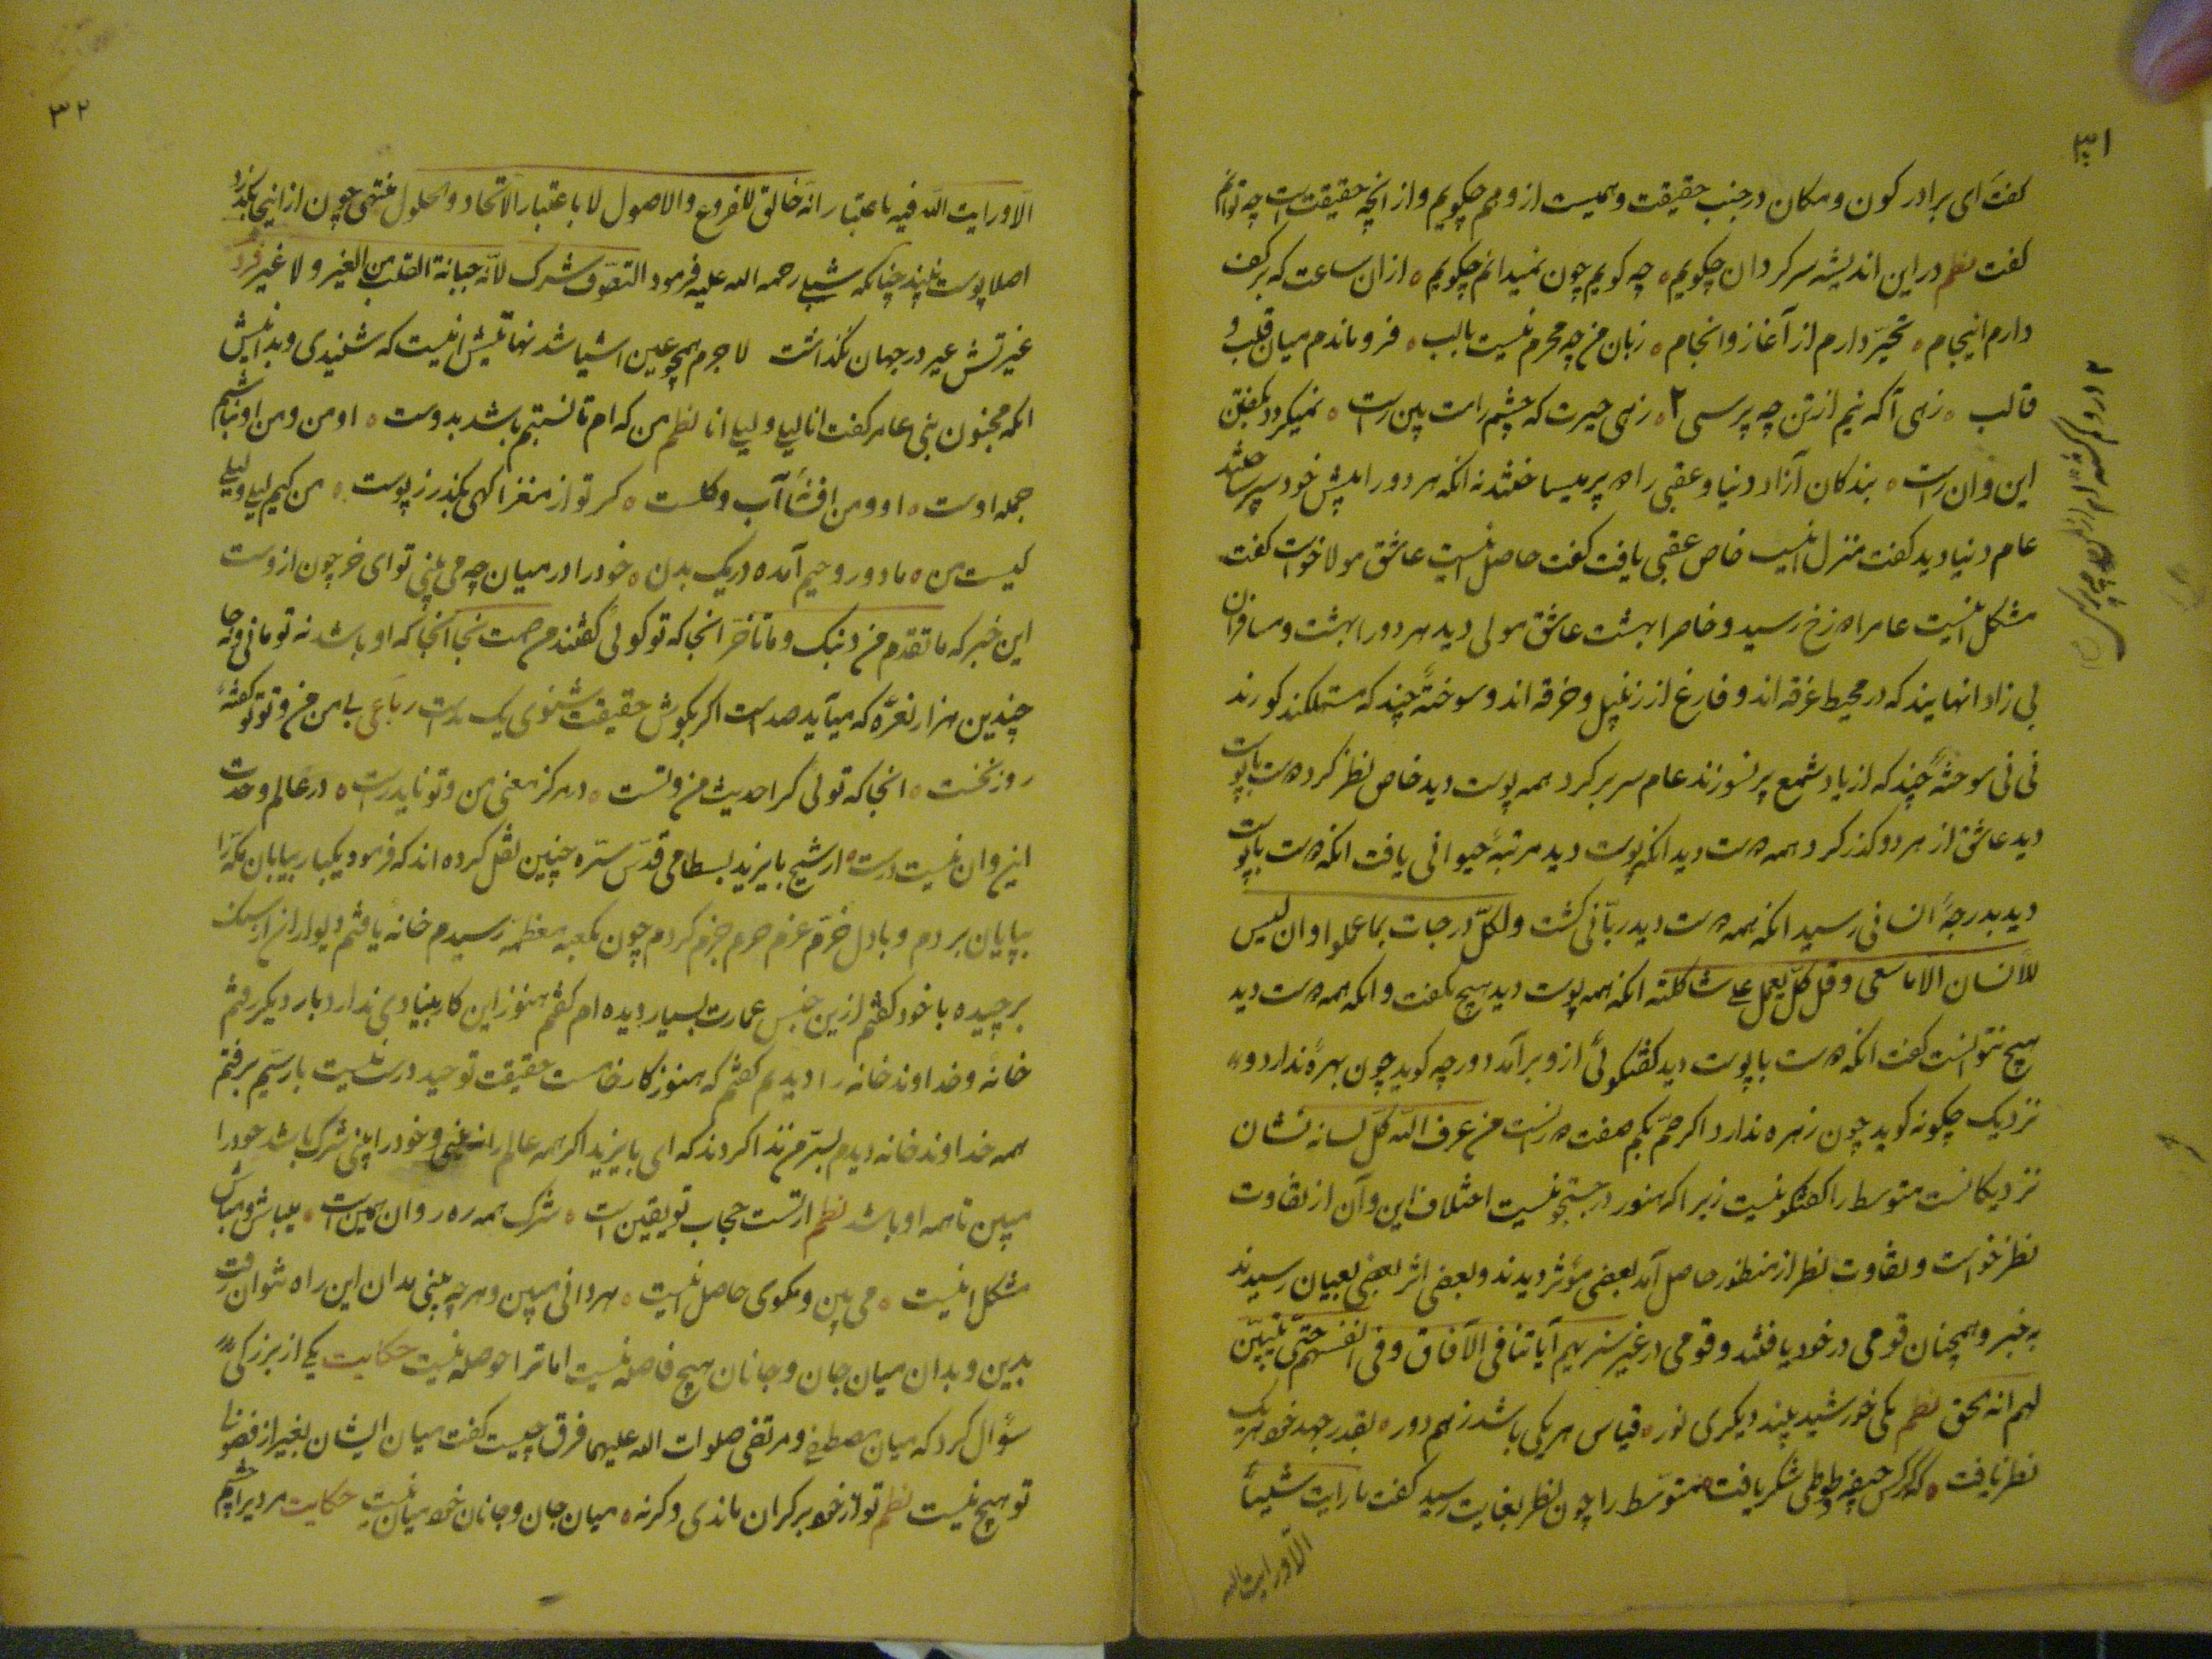 ۳۱
گفت ای برادر کون و مکان در جنب حقیقت وهمیست از وهم چگویم و از انچه حقیقت است چه توانم
گفت نظم در این اندیشه سرگردان چگویم ٥ چه گویم چون نمیدانم چگویم ٥ از ان ساعت که بر کف
دارم اینجام ٥ تحیّر دارم از آغاز و انجام ٥ زبان من چه محرم نیست بالب ٥ فرو ماندم میان قلب و
قالب ٥ زهی آگه نیم از تن چه پرسی ٢ ٥ زهی حیرت که چشم راست بین راست ٥ نمیگردد بگفتن
این و ان راست ٥ بندگان آزاد دنیا و عقبی راه پی میساختند نه انکه هر دو را پیش خود سپر ساختند
عام دنیا دید گفت منزل اینست خاص عقبی یافت گفت حاصل اینست عاشق مولا خواست گفت
مشکل اینست عام راه زخ رسید و خاص را بهشت عاشق مولی دید هر دو را بهشت و مسافران
بی زاد انهایند که در محیط غرقه اند و فارغ از زنبیل و خرقه اند و سوختهٔ چند که مستهلکند گورند
نی نی سوختهٔ چند که از یاد شمع پر نسوزند عام سر بر کرد همه پوست دید خاص نظر کرد هست با پوست
دید عاشق از هر دو گذر کرد همه هست دید انکه پوست دید مرتبهٔ حیوانی یافت انکه هست با پوست
دید بدرجهٔ انسانی رسید انکه همه هست دید ربّانی گشت ولکلّ درجات بما عملوا وان لیس
للأنسان الّا ما سعی و قل کلّ یعمل علی شاکلته انکه همه پوست دید هیچ نگفت وانکه همه هست دید
هیچ نتوانست گفت انکه هست با پوست دید گفتگوئی از و برآمد دور چه گوید چون بهره ندارد و
نزدیک چگونه گوید چون زهره ندارد اگر صمّ بکم صفت هست من عرف اللّه کلّ لسانه نشان
نزدیکانست متوسط را گفتگو نیست زیرا که هنوز در جستجو نیست اختلاف این و آن از تفاوت
نظر خواست و تفاوت نظر از منظور حاصل آمد بعضی مؤثر دیدند و بعضی اثر بعضی بعیان رسیدند
به خبر و همچنان قومی در خود یافتند و قومی در غیر سنریهم آیاتنا فی الآفاق و فی انفسهم حتّی یتبیّن
لهم انه الحق نظم یکی خورشید بیند دیگری نور ٥ قیاس هر یکی باشد ز هم دور ٥ بقدر جهد خود هر یک
نظر یافت ٥ که کرکس جیفه و طوطی شکر یافت متوسّط را چون نظر بغایت رسید گفت ما رایت شیئاً
الّا و رایت الله
۳۲
الّا و رایت اللّه فیه باعتبار انّه خالق للفروع والاصول لا باعتبار الاتحاد و الحلول منتهی چون از اینجا بگذرد
اصلا پوست نبیند چنانکه شبلی رحمه الله علیه فرمود التصوّف شرک لانّه صیانة القلب من الغیر و لا غیر فرد
غیرتش غیر در جهان نگذاشت لا جرم همچو عین اشیا شد نهایتش اینست که شنیدی و بدایش
انکه مجنون بنی عامر گفت انا لیلی و لیلی انا نظم من که ام تا نسبتم باشد بدوست ٥ او من و من او نباشم
جمله اوست ٥ او و من افشا آب و گلست ٥ گر تو از مغز اگهی بگذر ز پوست ٥ من کیم لیلی و لیلی
کیست من ٥ ما دو روحیم آمده در یک بدن ٥ خود را در میان چه می بینی تو ای خر چون از وست
این خبر که ما تقدم من ذنبک و ما تأخّر انجا که تو گوئی گفتند من همت نجا انجا که او باشد نه تو مانی و نه جا
چندین هزار نعره که میآید صداست اگر بگوش حقیقت شنوی یک نداست رباعی بی من من و تو تو گفته
روز نخست ٥ انجا که توئی گر احدیث من و تست ٥ در هرگز معنی من و تو ناید راست ٥ در عالم وحدت
این و ان نیست درست ٥ از شیخ بایزید بسطامی قدّس سرّه چنین نقل کرده اند که فرمود یکبار بیابان مکه را
بپایان بردم و با دل خرّم عزم حرم جزم کردم چون بکعبه معظمه رسیدم خانهٔ یافتم دیواران از سنک
برچیده با خود گفتم از این جنس عمارت بسیار دیده ام گفتم هنوز این کار بنیادی ندارد بار دیگر رفتم
خانه و خداوند خانه را دیدم گفتم که هنوز کار خامست حقیقت توحید درست نیست بار سیّم برفتم
همه خداوند خانه دیدم بسرّ من ندا کردند که ای بایزید اگر همه عالم را نبینی و خود را بینی شرک باشد خود را
مبین تا همه او باشد نظم از تست حجاب تو یقین است ٥ شرک همه ره روان همین است ٥ میباش و مباش
مشکل اینست ٥ می بین و مگوی حاصل اینست ٥ هر دانی مبین و هر چه بینی مدان این راه نتوان رفت
بدین و بدان میان جان و جانان هیچ فاصله نیست اما ترا حوصله نیست حکایت یکی از بزرگی
سؤال کرد که میان مصطفی و مرتضی صلوات الله علیهما فرق چیست گفت میان ایشان بغیر از فضولی
تو هیچ نیست نظم تو از خود بر کران ماندی وگرنه ٥ میان جان و جانان خود میان نیست حکایت مردیرا چشم